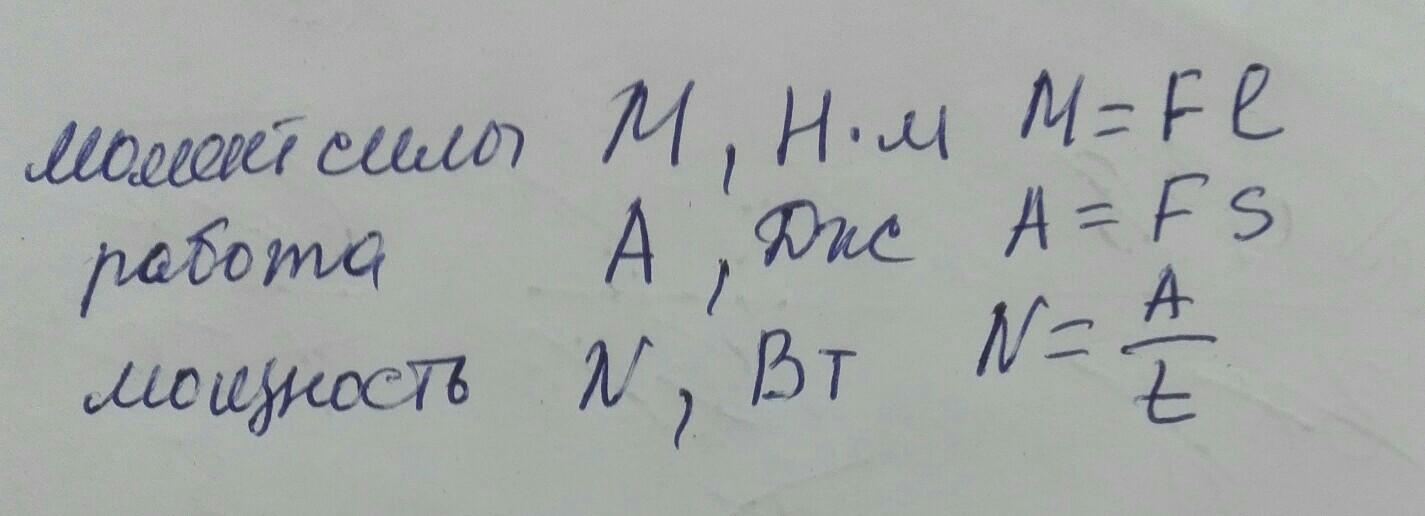 момент силы М, Н·м M = Fl
работа А, Дж A = FS
мощность N, Вт N = A/t